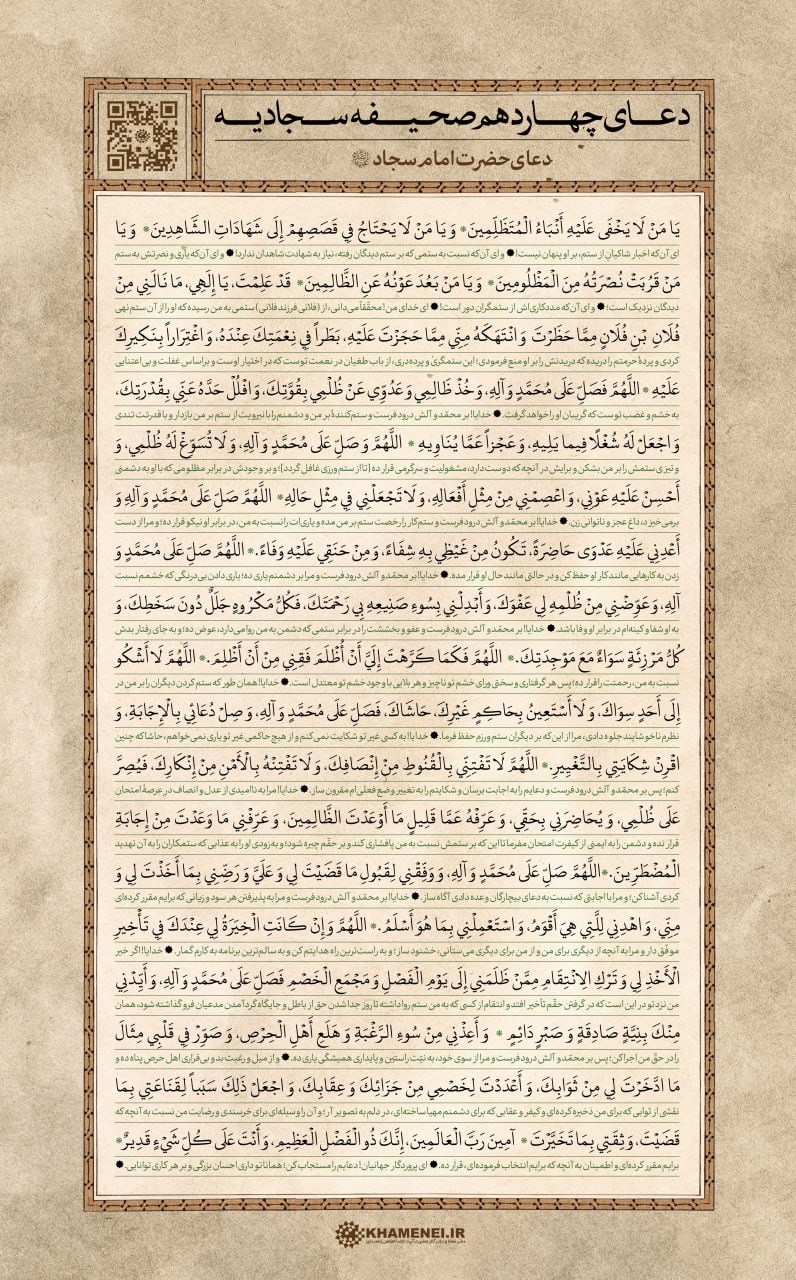 دعـــای چهـــاردهم صحیـــفه سـجادیـــه
دعای حضرت امام سجاد
یَا مَنْ لَا یَخْفَی عَلَیْهِ أَنْبَاءُ الْمُتَظَلِّمِینَ* وَ یَا مَنْ لَا یَحْتَاجُ فِی قَصَصِهِمْ إِلَی شَهَادَاتِ الشَّاهِدِینَ* وَ یَا
ای آن‌که اخبار شاکیانِ از ستم، بر او پنهان نیست! ● و ای آن‌که نسبت به ستمی که بر ستم دیدگان رفته، نیاز به شهادت شاهدان ندارد! ● و ای آن‌که یاری و نصرتش به ستم
مَنْ قَرُبَتْ نُصْرَتُهُ مِنَ الْمَظْلُومِینَ* وَ یَا مَنْ بَعُدَ عَوْنُهُ عَنِ الظَّالِمِینَ* قَدْ عَلِمْتَ، یَا إِلَهِی، مَا نَالَنِی مِنْ
دیدگان نزدیک است؛ ● و ای آن‌که مددکاری‌اش از ستمگران دور است! ● ای خدای من! محقّقاً می‌دانی، از (فلانی فرزند فلانی) ستمی به من رسیده که او را از آن ستم نهی
فُلَانِ بْنِ فُلَانٍ مِمَّا حَظَرْتَ وَ انْتَهَکَهُ مِنِّی مِمَّا حَجَزْتَ عَلَیْهِ، بَطَراً فِی نِعْمَتِکَ عِنْدَهُ، وَ اغْتِرَاراً بِنَکِیرِکَ
کردی و پردۀ حرمتم را دریده که دریدنش را بر او منع فرمودی؛ این ستمگری و پرده‌دری، از باب طغیان در نعمت توست که در اختیار اوست و براساس غفلت و بی‌اعتنایی
عَلَیْهِ *اللَّهُمَّ فَصَلِّ عَلَی مُحَمَّدٍ وَ آلِهِ، وَ خُذْ ظَالِمِی وَ عَدُوِّی عَنْ ظُلْمِی بِقُوَّتِکَ، وَ افْلُلْ حَدَّهُ عَنِّی بِقُدْرَتِکَ،
به خشم و غضب توست که گریبان او را خواهد گرفت. ● خدایا! بر محمّد و آلش درود فرست و ستم‌کنندۀ بر من و دشمنم را با نیرویت از ستم بر من بازدار و با قدرتت تندی
وَ اجْعَلْ لَهُ شُغْلًا فِیما یَلِیهِ، وَ عَجْزاً عَمَّا یُنَاوِیهِ * اللَّهُمَّ وَ صَلِّ عَلَی مُحَمَّدٍ وَ آلِهِ، وَ لَا تُسَوِّغْ لَهُ ظُلْمِی، وَ
و تیزی ستمش را بر من بشکن و برایش در آنچه که دوست دارد، مشغولیت و سرگرمی قرار ده [تا از ستم‌ورزی غافل گردد]؛ و بر وجودش در برابر مظلومی که با او به دشمنی
أَحْسِنْ عَلَیْهِ عَوْنِی، وَ اعْصِمْنِی مِنْ مِثْلِ أَفْعَالِهِ، وَ لَا تَجْعَلْنِی فِی مِثْلِ حَالِهِ* اللَّهُمَّ صَلِّ عَلَی مُحَمَّدٍ وَ آلِهِ وَ
برمی‌خیزد، داغ عجز و ناتوانی زن. ● خدایا! بر محمّد و آلش درود فرست و ستم‌کار را رخصت ستم بر من مده و یاری‌ات را نسبت به من، در برابر او نیکو قرار ده؛ و مرا از دست
أَعْدِنِی عَلَیْهِ عَدْوَی حَاضِرَةً، تَکُونُ مِنْ غَیْظِی بِهِ شِفَاءً، وَ مِنْ حَنَقِی عَلَیْهِ وَفَاءً.* اللَّهُمَّ صَلِّ عَلَی مُحَمَّدٍ وَ
زدن به کارهایی مانند کار او حفظ کن و در حالتی مانند حال او قرار مده. ● خدایا! بر محمّد و آلش درود فرست و مرا بر دشمنم یاری ده؛ یاری دادن بی‌درنگی که خشمم نسبت
آلِهِ، وَ عَوِّضْنِی مِنْ ظُلْمِهِ لِی عَفْوَکَ، وَ أَبْدِلْنِی بِسُوءِ صَنِیعِهِ بِی رَحْمَتَکَ، فَکُلُّ مَکْرُوهٍ جَلَلٌ دُونَ سَخَطِکَ، وَ
به او شفا و کینه‌ام در برابر او وفا باشد. ● خدایا! بر محمّد و آلش درود فرست و عفو و بخششت را در برابر ستمی که دشمن به من روا می‌دارد، عوض ده؛ و به جای رفتار بدش
کُلُّ مَرْزِئَةٍ سَوَاءٌ مَعَ مَوْجِدَتِکَ.* اللَّهُمَّ فَکَمَا کَرَّهْتَ إِلَیَّ أَنْ أُظْلَمَ فَقِنِی مِنْ أَنْ أَظْلِمَ.* اللَّهُمَّ لَا أَشْکُو
نسبت به من، رحمتت را قرار ده؛ پس هر گرفتاری و سختی ورای خشم تو ناچیز و هر بلایی با وجود خشم تو معتدل است. ● خدایا! همان طور که ستم کردن دیگران را بر من در
إِلَی أَحَدٍ سِوَاکَ، وَ لَا أَسْتَعِینُ بِحَاکِمٍ غَیْرِکَ، حَاشَاکَ، فَصَلِّ عَلَی مُحَمَّدٍ وَ آلِهِ، وَ صِلْ دُعَائِی بِالْإِجَابَةِ، وَ
نظرم ناخوشایند جلوه دادی، مرا از این که بر دیگران ستم ورزم حفظ فرما. ● خدایا! به کسی غیر تو شکایت نمی‌کنم و از هیچ حاکمی غیر تو یاری نمی‌خواهم، حاشا که چنین
اقْرِنْ شِکَایَتِی بِالتَّغْیِیرِ.* اللَّهُمَّ لَا تَفْتِنِّی بِالْقُنُوطِ مِنْ إِنْصَافِکَ، وَ لَا تَفْتِنْهُ بِالْأَمْنِ مِنْ إِنْکَارِکَ، فَیُصِرَّ
کنم؛ پس بر محمّد و آلش درود فرست و دعایم را به اجابت برسان و شکایتم را به تغییر وضع فعلی‌ام مقرون ساز. ● خدایا! مرا به ناامیدی از عدل و انصاف در عرصۀ امتحان
عَلَی ظُلْمِی، وَ یُحَاضِرَنِی بِحَقِّی، وَ عَرِّفْهُ عَمَّا قَلِیلٍ مَا أَوْعَدْتَ الظَّالِمِینَ، وَ عَرِّفْنِی مَا وَعَدْتَ مِنْ إِجَابَةِ
قرار نده و دشمن را به ایمنی از کیفرت امتحان مفرما تا این که بر ستمش نسبت به من پافشاری کند و بر حقّم چیره شود؛ و به زودی او را به عذابی که ستمکاران را به آن تهدید
الْمُضْطَرِّینَ.*اللَّهُمَّ صَلِّ عَلَی مُحَمَّدٍ وَ آلِهِ، وَ وَفِّقْنِی لِقَبُولِ مَا قَضَیْتَ لِی وَ عَلَیَّ وَ رَضِّنِی بِمَا أَخَذْتَ لِی وَ
کردی آشنا کن؛ و مرا با اجابتی که نسبت به دعای بیچارگان وعده دادی آگاه ساز. ● خدایا! بر محمّد و آلش درود فرست و مرا به پذیرفتن هر سود و زیانی که برایم مقرر کرده‌ای
مِنِّی، وَ اهْدِنِی لِلَّتِی هِیَ أَقْوَمُ، وَ اسْتَعْمِلْنِی بِمَا هُوَ أَسْلَمُ.* اللَّهُمَّ وَ إِنْ کَانَتِ الْخِیَرَةُ لِی عِنْدَکَ فِی تَأْخِیرِ
موفّق دار و مرا به آنچه از دیگری برای من و از من برای دیگری می‌ستانی، خشنود ساز؛ و به راست‌ترین راه هدایتم کن و به سالم‌ترین برنامه به کارم گمار. ● خدایا! اگر خیر
الْأَخْذِ لِی وَ تَرْکِ الِانْتِقَامِ مِمَّنْ ظَلَمَنِی إِلَی یَوْمِ الْفَصْلِ وَ مَجْمَعِ الْخَصْمِ فَصَلِّ عَلَی مُحَمَّدٍ وَ آلِهِ، وَ أَیِّدْنِی
من نزد تو در این است که در گرفتن حقّم تأخیر افتد و انتقام از کسی که به من ستم روا داشته تا روز جدا شدن حق از باطل و جایگاه گرد آمدن مدعیان فرو گذاشته شود، همان
مِنْکَ بِنِیَّةٍ صَادِقَةٍ وَ صَبْرٍ دَائِمٍ * وَ أَعِذْنِی مِنْ سُوءِ الرَّغْبَةِ وَ هَلَعِ أَهْلِ الْحِرْصِ، وَ صَوِّرْ فِی قَلْبِی مِثَالَ
را در حقّ من اجرا کن؛ پس بر محمّد و آلش درود فرست و مرا از سوی خود، به نیّت راستین و پایداری همیشگی یاری ده. ● و از میل و رغبت بد و بی‌قراری اهل حرص پناه ده و
مَا ادَّخَرْتَ لِی مِنْ ثَوَابِکَ، وَ أَعْدَدْتَ لِخَصْمِی مِنْ جَزَائِکَ وَ عِقَابِکَ، وَ اجْعَلْ ذَلِکَ سَبَباً لِقَنَاعَتِی بِمَا
نقشی از ثوابی که برای من ذخیره کرده‌ای و کیفر و عقابی که برای دشمنم مهیا ساخته‌ای، در دلم به تصویر آر؛ و آن را وسیله‌ای برای خرسندی و رضایت من نسبت به آنچه که
قَضَیْتَ، وَ ثِقَتِی بِمَا تَخَیَّرْتَ * آمِینَ رَبَّ الْعَالَمِینَ، إِنَّکَ ذُو الْفَضْلِ الْعَظِیمِ، وَ أَنْتَ عَلَی کُلِّ شَیْءٍ قَدِیرٌ*
برایم مقرر کرده‌ای و اطمینان به آنچه که برایم انتخاب فرموده‌ای، قرار ده. ● ای پروردگار جهانیان! دعایم را مستجاب کن؛ همانا تو دارای احسان بزرگی و بر هر کاری توانایی. ●
KHAMENEI.IR